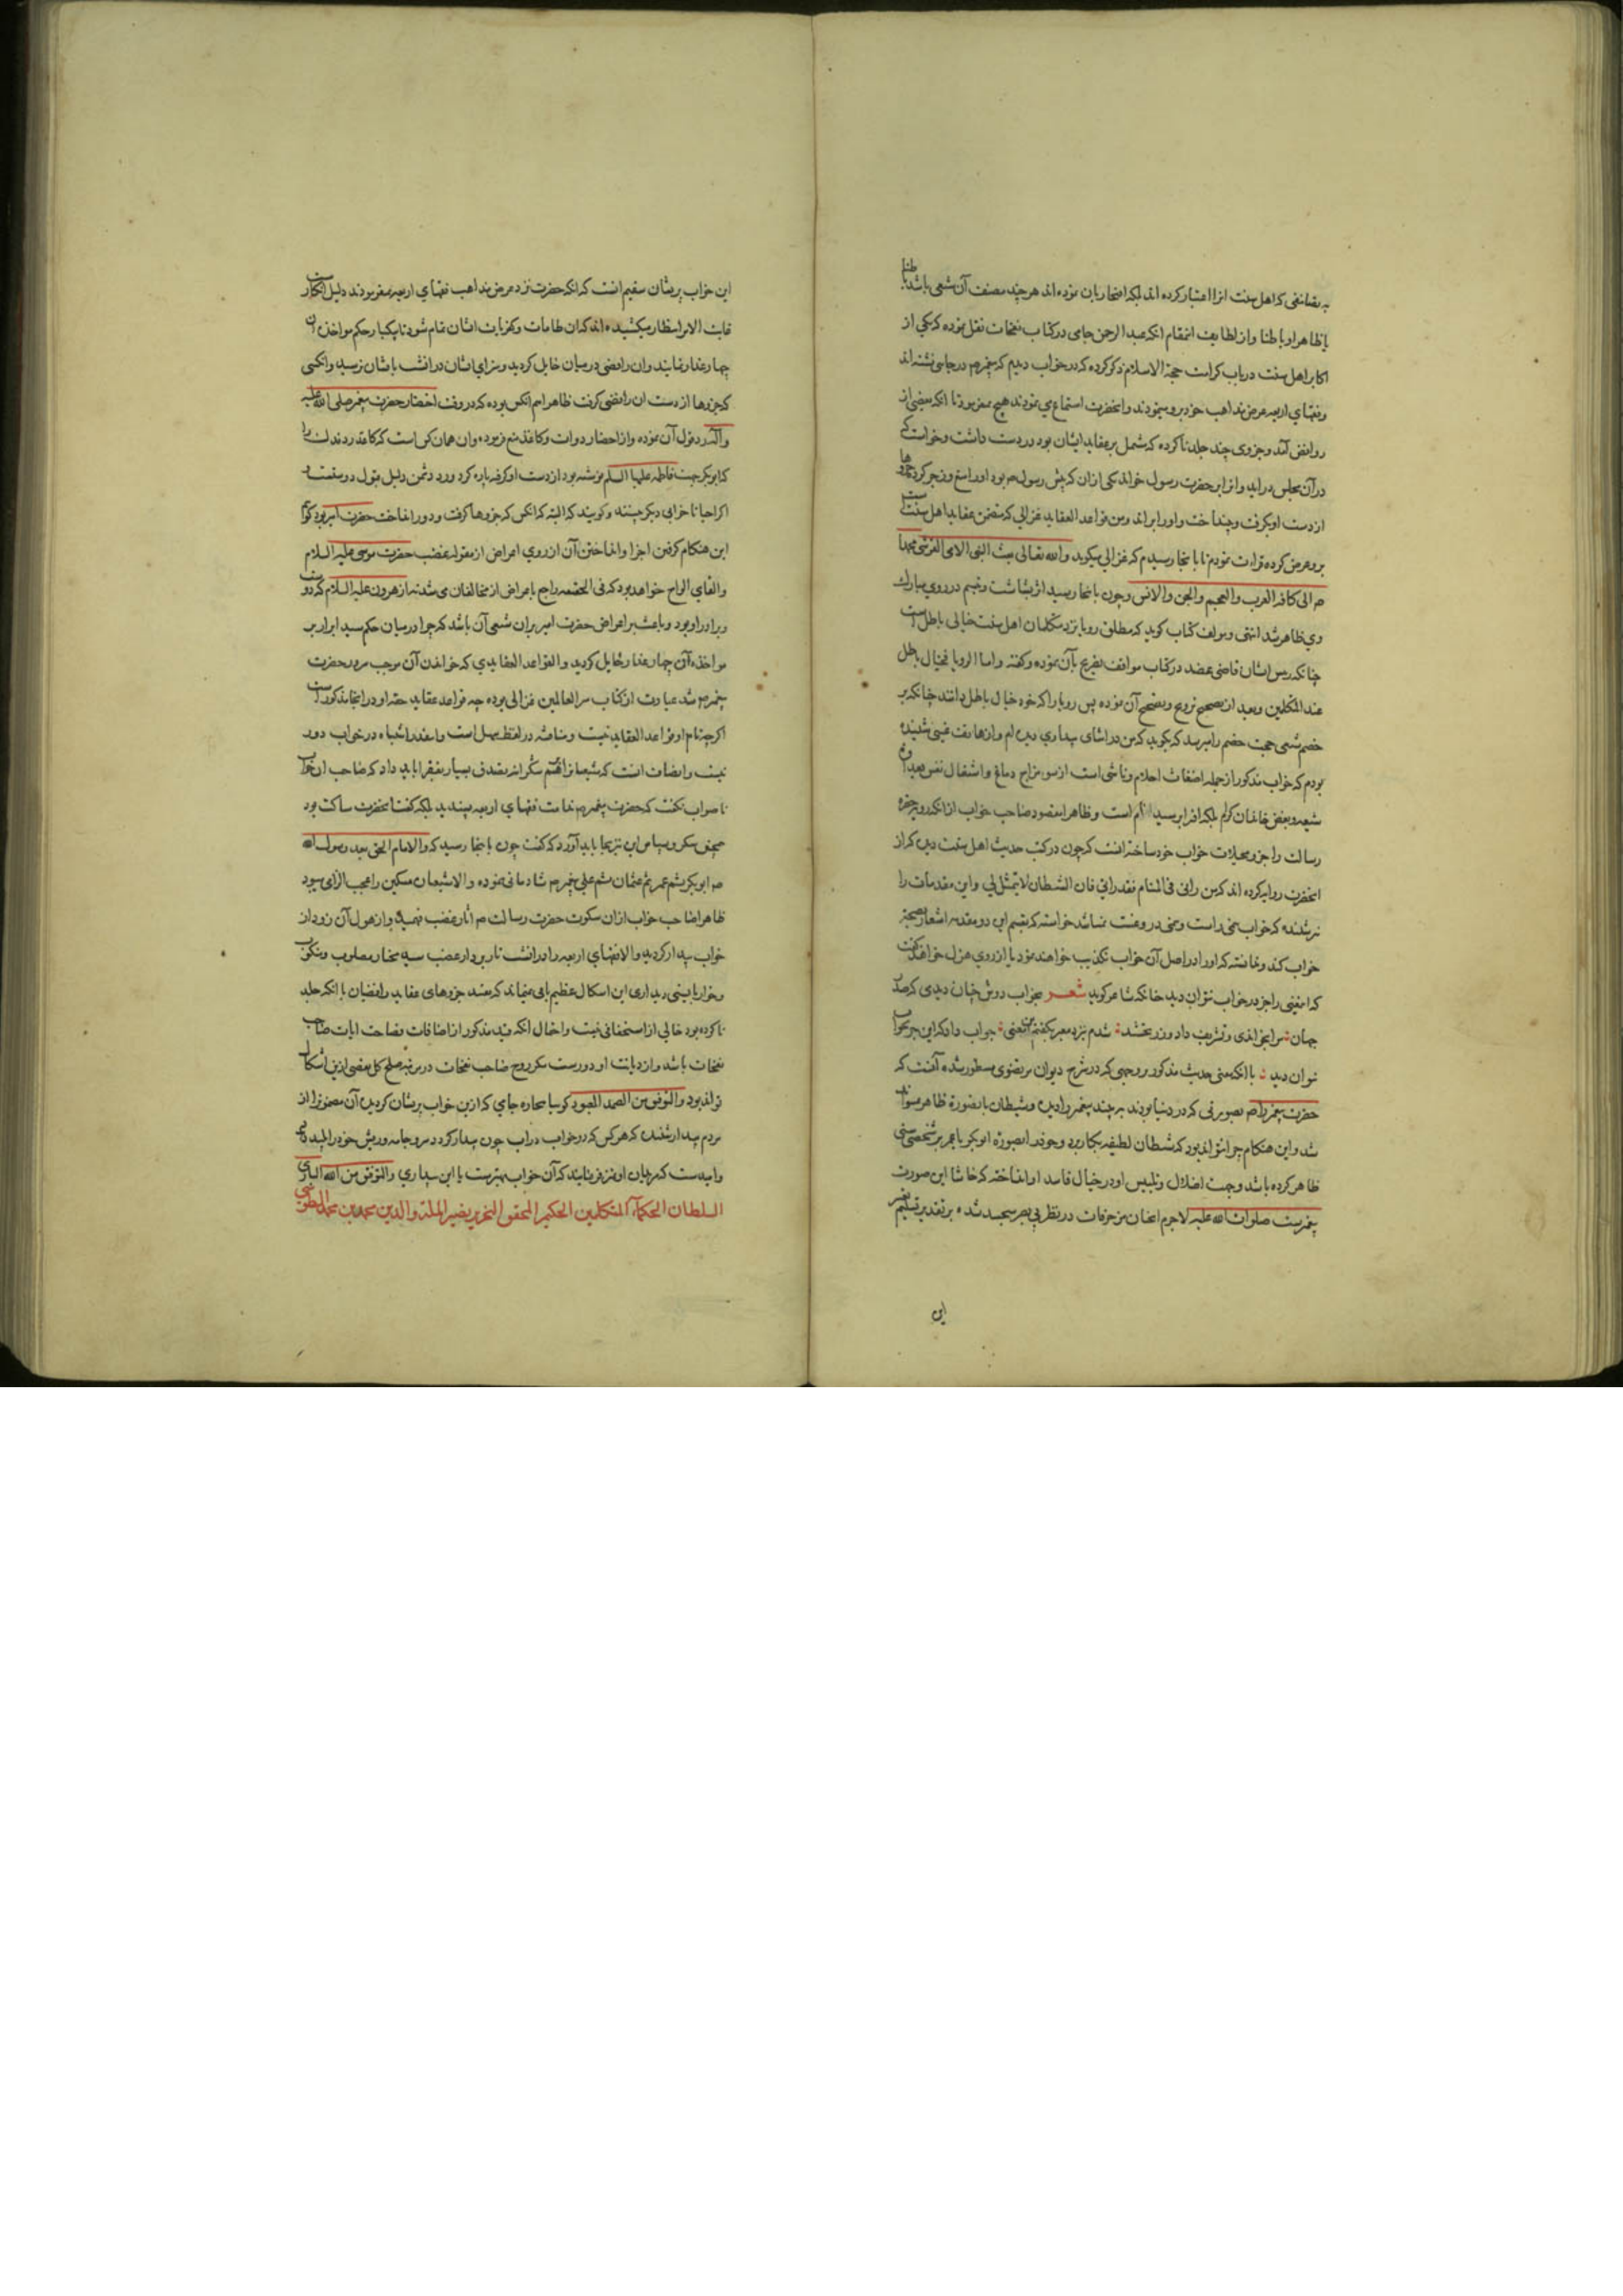 به تصانیفی که اهل سنت انرا اعتبار کرده اند بلکه افتخار بان نموده اند هرچند مصنف آن شیعی باشد باطنا
یا ظاهرا و باطنا و از لطایف انمقام انکه عبد الرحمن جامی در کتاب نفحات نقل نموده که یکی از
اکابر اهل سنت در باب کرامت حجة الاسلام ذکر کرده که در خواب دیدم که پیغمبر م در جایی نشسته اند
وفقهای اربعه عرض مذاهب خود بر و مینمودند وانحضرت استماع می نمودند هیچ نمیفرمود تا انکه بعضی از
روافض آمد وجزوی چند جلد ناکرده که مشتمل بر عقاید ایشان بود در دست داشت وخواست که
در آن مجلس دراید وانرا بر حضرت رسول خواند یکی ازان که پیش رسول م بود اورا منع وزجر کرد وجزوها
از دست او بگرفت وبینداخت واورا براند ومن قواعد العقاید غزالی که متضمن عقاید اهل سنت است
برو عرض کرده قراءت نمودم تا بانجا رسیدم که غزالی میگوید والله تعالی بعث النبی الامی القرشی محمدا
م الی کافة العرب والعجم والجن والانس وچون بانجا رسید اثر بشاشت وتبسم در روی مبارک
وی ظاهر شد انتهی ومولف کتاب گوید که مطلق رویا نزد متکلمان اهل سنت خیالی باطل است
چنانکه رییس ایشان قاضی عضد در کتاب مواقف تصریح بآن نموده وگفته واما الرویا فخیال باطل
عند المتکلمین وبعد از تصحیح ترویج وتصحیح آن نموده پس رویا را که خود خیال باطل دانند چنانکه بر
خصم شیعی حجت خصم را میرسد که بگوید که من در اثنای بیداری دیده ام واز هاتف غیبی شنیده
بودم که خواب مذکور از جمله اضغاث احلام وناشی است از سوء مزاج دماغ واشتغال نفس بعداوت
شیعه وبغض خاندان کرام بلکه افترا بر سید انام است وظاهرا مقصود صاحب خواب از انکه رویت حضرة
رسالت را جزو مخیلات خواب خود ساخته انست که چون در کتب حدیث اهل سنت دیده که از
انحضرت روایه کرده اند که من رانی فی المنام فقد رانی فان الشیطان لا یتمثل لی واین مقدمات را
نه شنیده که خواب یخی راست ویخی دروغست بنابرین خواسته که بتقسیم این دو مقدمه اشعار بصحة
خواب کند وندانسته که اورا در اصل آن خواب تکذیب خواهند نمود یا از روی هزل خواهند گفت
که اینمعنی را جز در خواب نتوان دید چنانکه شاعر گوید شعــر بخواب دوش چنان دیدی که صدر
جهان : مرا بخواندی وتشریف داد وزر بخشید : شدم نزد معبر بگفتم اینمعنی : جواب داد که این جز بخواب
نتوان دید : با انکه معنی حدیث مذکور بر وجهی که در شرح دیوان مرتضوی مسطور شده آنست که
حضرت پیغمبر را م بصورتی که در دنیا بودند هر چند پیغمبر را دیده وشیطان بانصورة ظاهر نمیتواند
شد واین هنگام چرا نتواند بود که شیطان لطیفه بکار برد وخود را بصورة ابوبکر یا عمر بر شخصی سنی
ظاهر کرده باشد وجهت اضلال وتلبیس او در خیال فاسد او انداخته که حاشا این صورت
پیغمبرست صلوات الله علیه لاجرم انچنان مزخرفات در نظر بی بصر سنجیده شده بر تقدیر تسلیم تعبیر
این
این خواب پریشان سقیم انست که انکه حضرت نزد عرض مذاهب فقهای اربعه نمیفرمودند دلیل انکار است
غایت الامر انتظار میکشیده اند که ان طامات وکفریات ایشان تمام شود تا بیکبار حکم مواخذه آن
چهار عذار نمایند وان رافضی در میان حایل گردید وسزای ایشان در انشب بایشان نرسید وانکسی
که جزوها از دست ان رافضی گرفت ظاهرا هم انکس بوده که در وقت احتضار حضرت پیغمبر صلی الله علیه
وآله رد قول آن نموده واز احضار دوات وکاغذ منع فرموده وان همان کس است که کاغذ رد فدک را
که ابوبکر جهت فاطمه علیها السلم نوشته بود از دست او گرفته پاره کرد ورد دشمن دلیل قبول دوستست و
اگر احیانا خرابی دیگر جسته وگویند که البته که انکس که جزوها گرفت ودور انداخت حضرت امیر بود گوییم
این هنگام گرفتن اجزا وانداختن آن از روی اعراض از مقوله غضب حضرت موسی علیه السلام
والقای الواح خواهد بود که فی الحقیقه راجع باعراض از مخالفان می شد نه از هرون علیه السلام که دوست
وبرادر او بود وباعث بر اعراض حضرت امیر بران شیعی آن باشد که چرا در میان حکم سید ابرار بر
مواخذه آن چهار غدار حایل گردید والقواعد العقایدی که خواندن آن موجب سرور حضرت
پیغمبر م شد عبارت از کتاب سر العالمین غزالی بوده چه قواعد عقاید حقه او در انجا مذکور است
اگرچه نام او قواعد العقاید نیست ومناقشه در لفظ سهل است وانقدر اشتباه در خواب دور
نیست وانصاف انست که شیعه را نهم شکرانه تصدق بسیار بفقرا باید داد که صاحب ان خواب
ناصواب نگفت که حضرت پیغمبر م مذاهب فقهای اربعه پسندید بلکه گفت انحضرت ساکت بود
همچنین شکر وسپاس این نیز بجا باید آورد که نگفت چون بانجا رسید که والامام الحق بعد رسول الله
م ابو بکر ثم عمر ثم عثمان ثم علی پیغمبر م شادمانی نموده والا شیعیان مسکین را عجب الزامی میبود
ظاهرا صاحب خواب ازان سکوت حضرت رسالت م اثار غضب فهمیده واز هول آن زود از
خواب بیدار گردیده والا فقهای اربعه را در انشب تا بر دار غضب سید مختار مصلوب ومنکوب
وخوار یا بینی دیداری این اشکال عظیم باقی میماند که مقید جزوهای عقاید رافضیان با انکه جلد
ناکرده بود خالی از استخفافی نیست واحتمال انکه قید مذکور از اضافات فصاحت ایات صاحب
نفحات باشد واز دیانت او دورست مگر روح صاحب نفحات در مرتبه صلح کل مفیض ازین اشکال
تواند بود والتوفیق من الصمد المعبود گویا بیچاره جامی که ازین خواب پریشان گردیده آن مضمون را از
مردم بیدار نشنیده که هر کس که در خواب در اب چون بیدار گردد سر وجامه وریش خود را پلید یابد
وامیدست که مریدان او نیز فرمایند که آن خواب بهترست یا این بیداری والتوفیق من الله الباری
السلطان الحکمآء المتکلمین الحکیم المحقق النحریر نصیر الملة والدین محمد بن محمد الطوسی